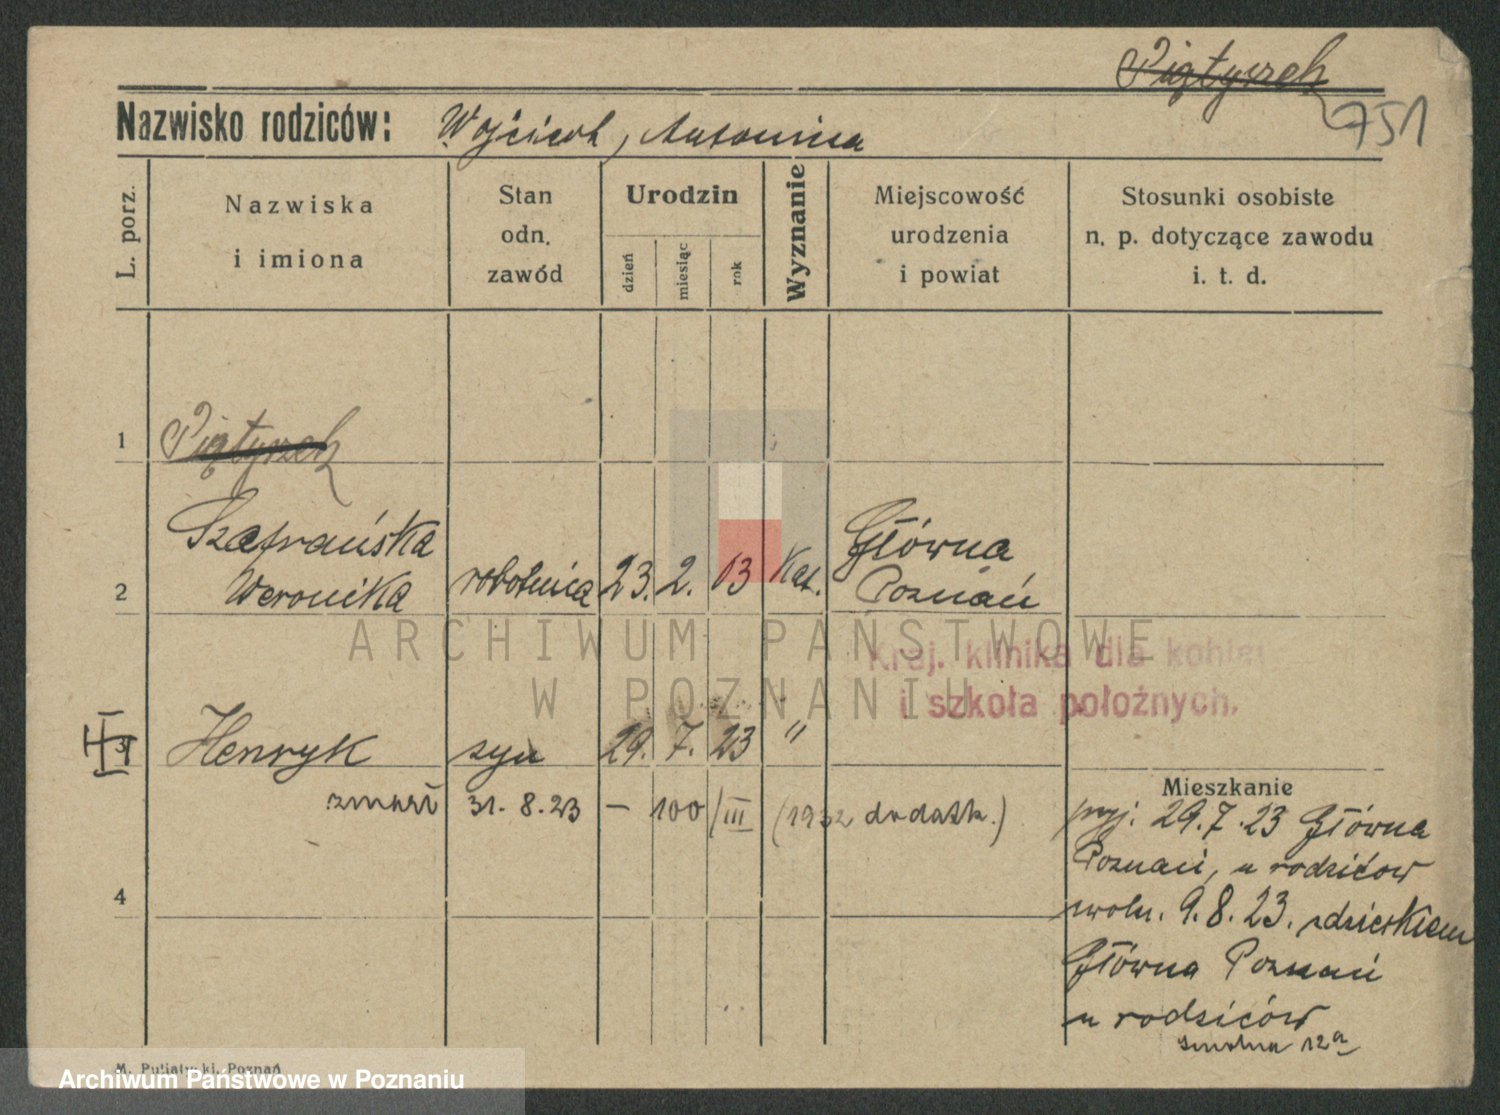 Piątyszek
751
Nazwisko rodziców: Wojciech, Antonina
L. porz.
Nazwiska
i imiona
Stan
odn.
zawód
Urodzin
dzień
miesiąc
rok
Wyznanie
Miejscowość
urodzenia
i powiat
Stosunki osobiste
n. p. dotyczące zawodu
i. t. d.
1
Piątyszek
Szafrańska
2 Weronika robotnica 23. 2. 03 Kat.
Główna
Poznań
Kraj. klinika dla kobiet
i szkoła położnych.
ARCHIWUM PAŃSTWOWE
W POZNANIU
3 Henryk syn 29. 7. 23 "
zmarł 31. 8. 23 – 100/III (1932 dodatk.)
4
Mieszkanie
przyj. 29.7.23 Główna
Poznań, u rodziców
zwoln. 9.8.23. z dzieckiem
Główna Poznań
u rodziców
Smolna 12a
M. Putiatycki, Poznań
Archiwum Państwowe w Poznaniu